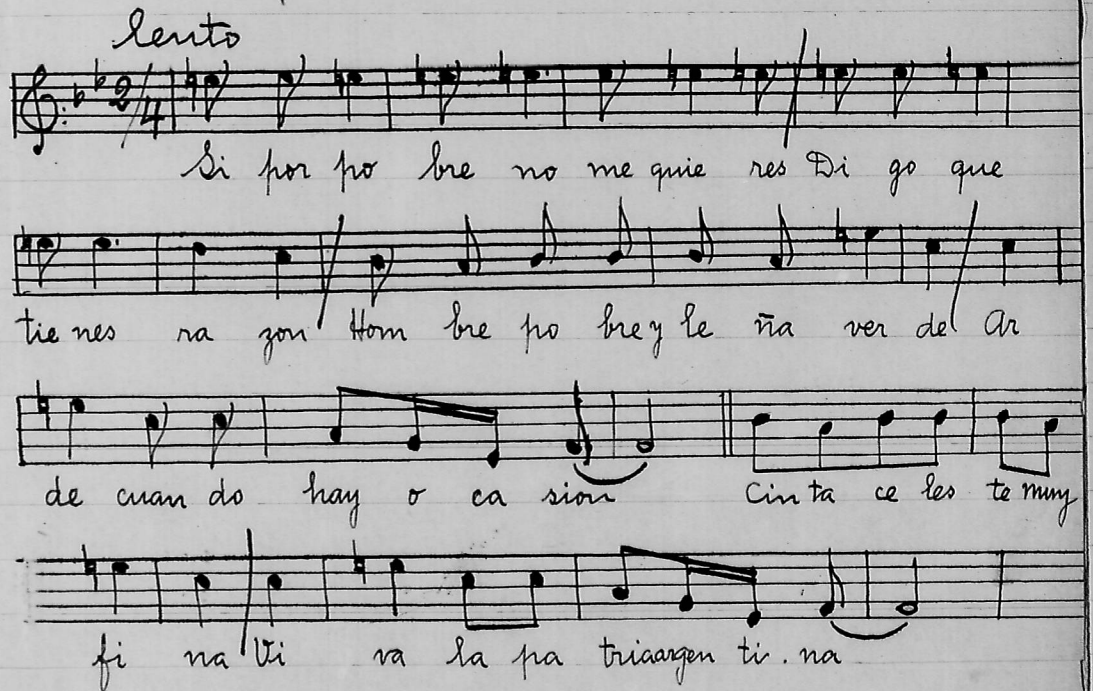 lento
2/4
Si por po bre no me quie res Di go que
tie nes ra zon Hom bre po bre y le ña ver de Ar
de cuan do hay o ca sion Cin ta ce les te muy
fi na Vi va la pa triaargen ti. na